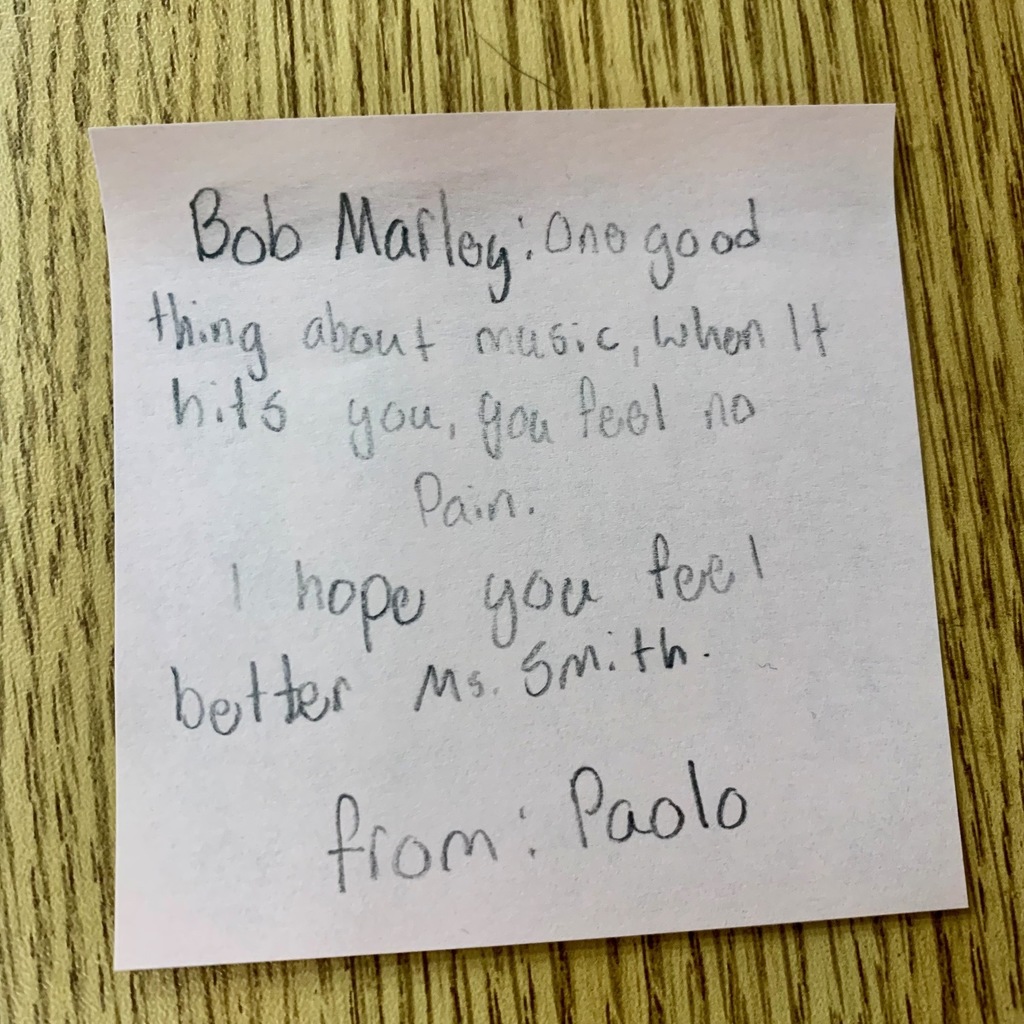 Bob Marley: One good
thing about music, when It
hits you, you feel no
Pain.
I hope you feel
better Ms. Smith.
from: Paolo